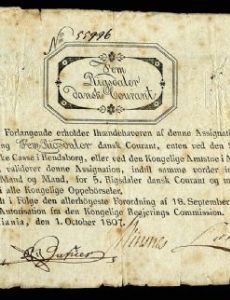 No 55996
Fem
Rigsdaler
dansk Courant.
Forlangende erholder Ihændehaveren af denne Assignati
ng Fem Rigsdaler dansk Courant, enten ved den
te Casse i Rendsborg, eller ved den Kongelige Amtstue i
validerer denne Assignation, indtil samme vorder i
Mand og Mand, for 5. Rigsdaler dansk Courant og m
i alle Kongelige Oppebörseler.
i Fölge den allerhögeste Forordning af 18. September
Autorisation fra den Kongelige Regjerings Commission.
iania, den 1. October 1807.